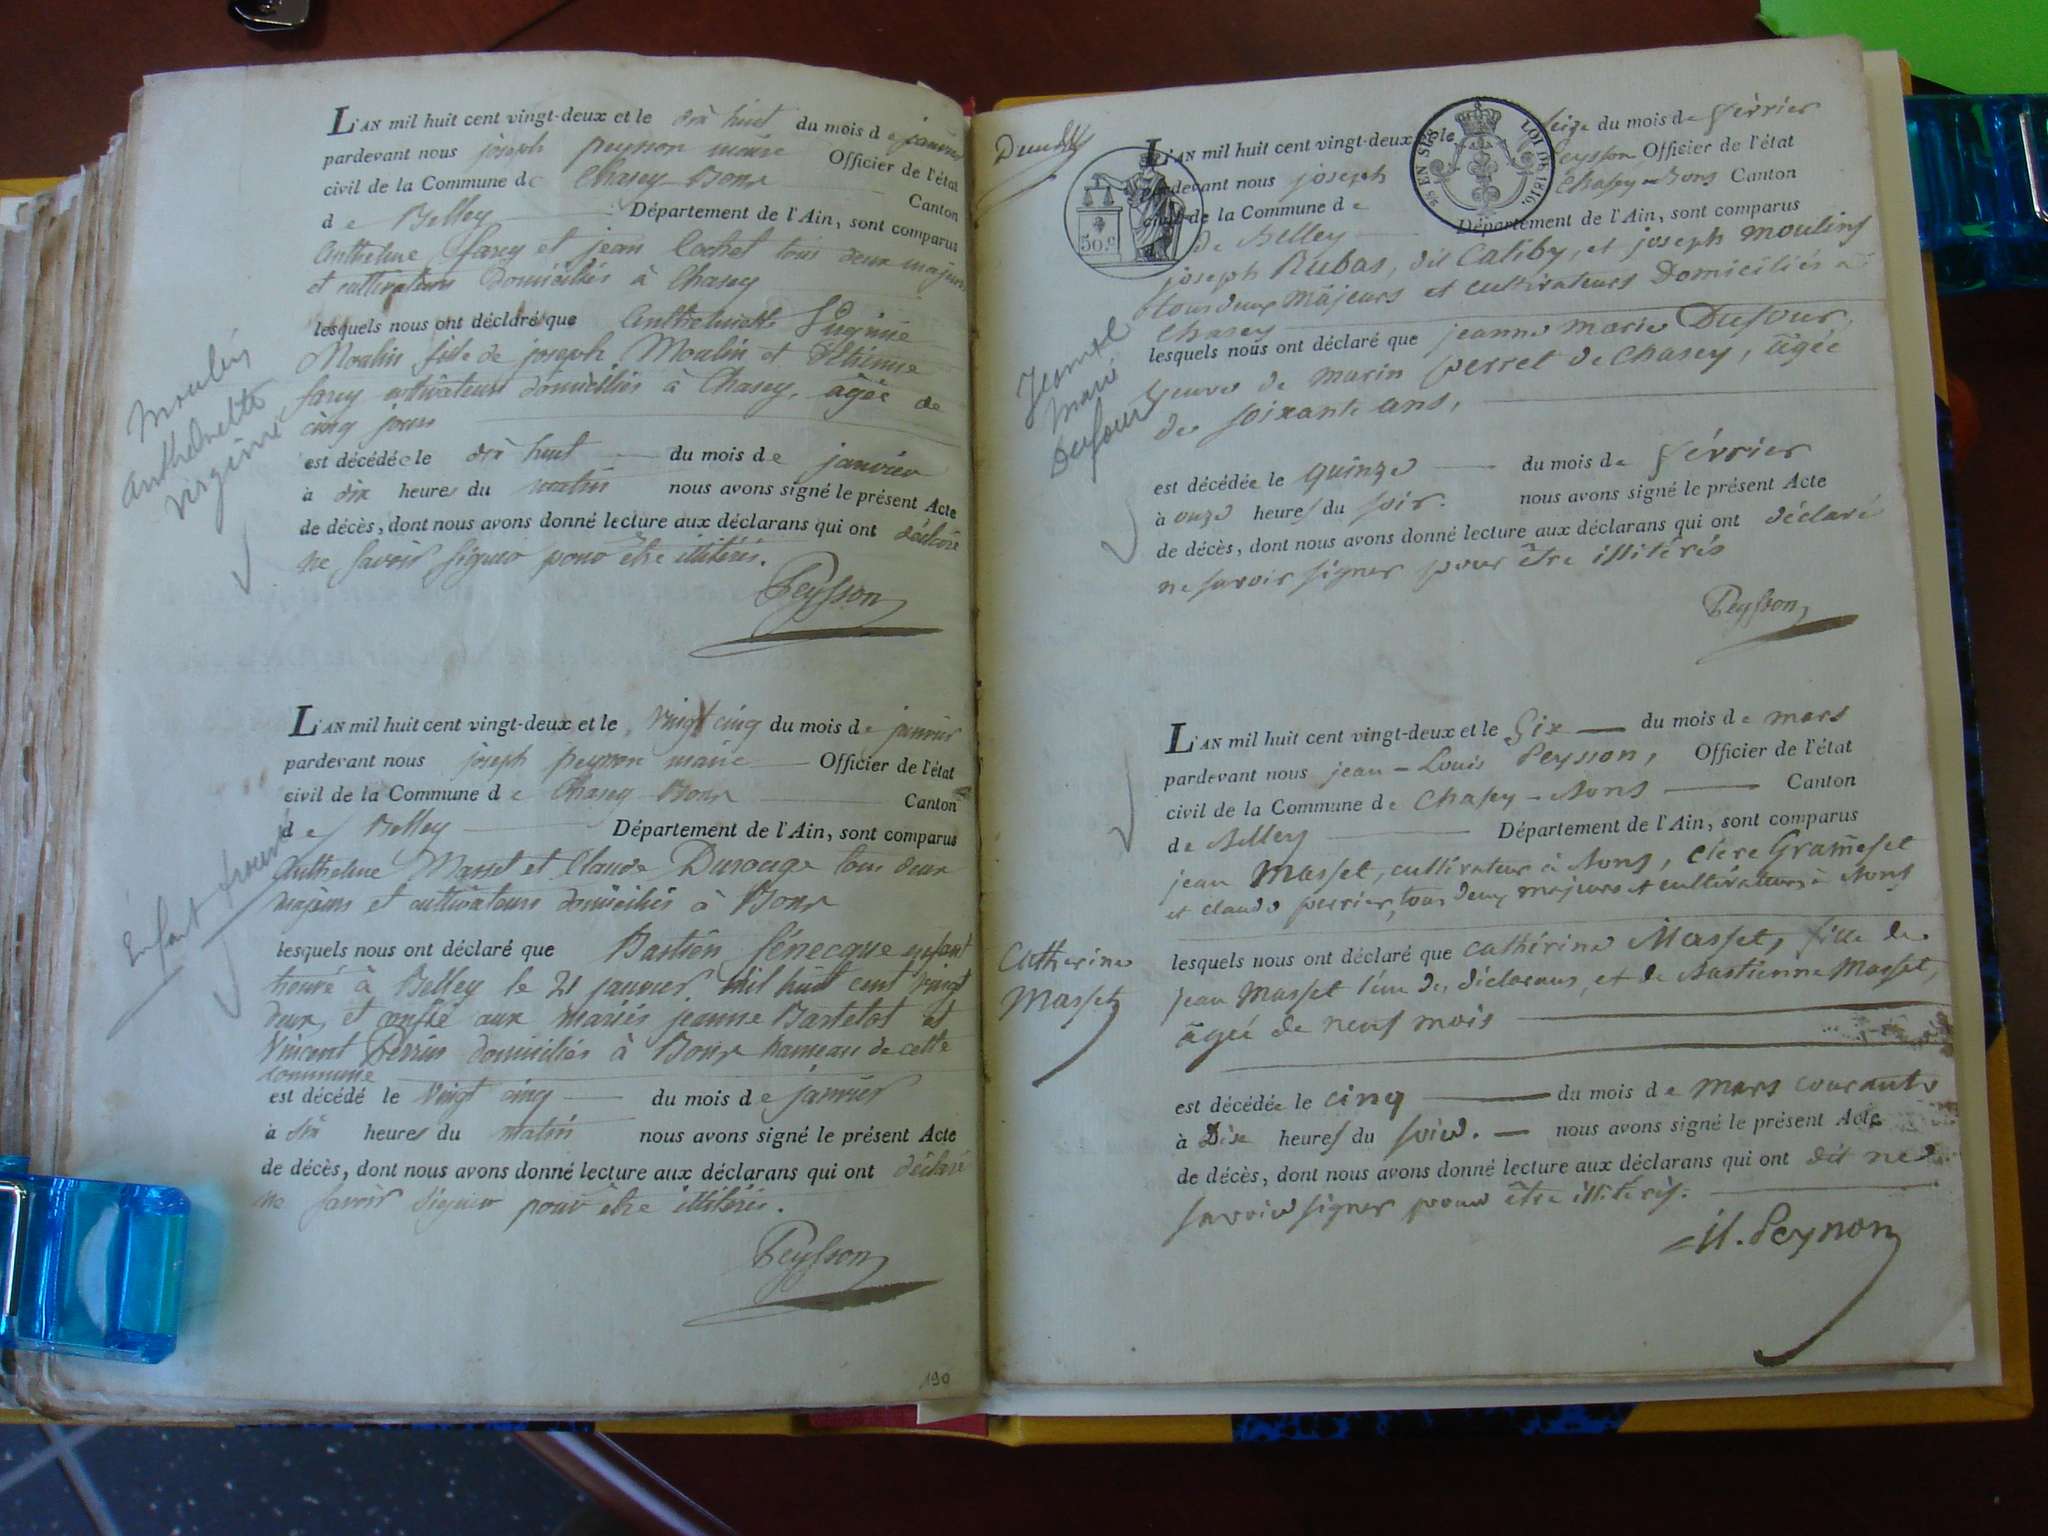 L'AN mil huit cent vingt-deux et le dix huit du mois de janvier
pardevant nous joseph peysson maire Officier de l'état
civil de la Commune de Chasey-Bons Canton
de Belley Département de l'Ain, sont comparus
Anthelme farcy et jean Cochet tous deux majeurs
et cultivateurs domiciliés à Chasey
lesquels nous ont déclaré que Anthelmette Virginie
Moulin fille de joseph Moulin et
farcy cultivateurs domiciliés à Chasey, agée de
cinq jours
est décédée le dix huit du mois de janvier
à dix heures du matin nous avons signé le présent Acte
de décès, dont nous avons donné lecture aux déclarans qui ont déclaré
ne savoir signer pour être illitérés.
Peysson
Moulin
Anthelmette
Virginie
L'AN mil huit cent vingt-deux et le vingt cinq du mois de janvier
pardevant nous joseph peysson maire Officier de l'état
civil de la Commune de Chasey-Bons Canton
de Belley Département de l'Ain, sont comparus
Anthelme Masset et Claude Durouge tous deux
majeurs et cultivateurs domiciliés à Bons
lesquels nous ont déclaré que Bastien Sénecque enfant
trouvé à Belley le 21 janvier mil huit cent vingt
deux, et confié aux mariés jeanne Bartetot et
Vincent Perrin domiciliés à Bons hameau de cette
commune
est décédé le vingt cinq du mois de janvier
à dix heures du matin nous avons signé le présent Acte
de décès, dont nous avons donné lecture aux déclarans qui ont déclaré
ne savoir signer pour être illitérés.
Peysson
Enfant trouvé
190
50.c
5es EN SUS LOI DE 1816.
L'AN mil huit cent vingt-deux et le seize du mois de février
pardevant nous joseph Peysson Officier de l'état
civil de la Commune de Chasey-Bons Canton
de Belley Département de l'Ain, sont comparus
joseph Rubas, dit Caliby, et joseph moulins
tous deux majeurs et cultivateurs Domiciliés à
Chasey
lesquels nous ont déclaré que jeanne marie Dufour,
veuve de marin perret de Chasey, âgée
de soixante ans,
est décédée le quinze du mois de février
à onze heures du soir. nous avons signé le présent Acte
de décès, dont nous avons donné lecture aux déclarans qui ont déclaré
ne savoir signer pour être illitérés
Peysson
Jeanne
Marie
Dufour
L'AN mil huit cent vingt-deux et le six du mois de mars
pardevant nous jean-Louis Peysson, Officier de l'état
civil de la Commune de Chasey-Bons Canton
de Belley Département de l'Ain, sont comparus
jean Masset, cultivateur à Bons,
et claude perrier, tous deux majeurs et cultivateurs à Bons
lesquels nous ont déclaré que cathérine Masset, fille de
jean Masset l'un des déclarans, et de Bastienne Masset,
âgée de neuf mois
est décédée le cinq du mois de mars courant
à Dix heures du soir. nous avons signé le présent Acte
de décès, dont nous avons donné lecture aux déclarans qui ont dit ne
savoir signer pour être illitérés.
Catherine
Masset